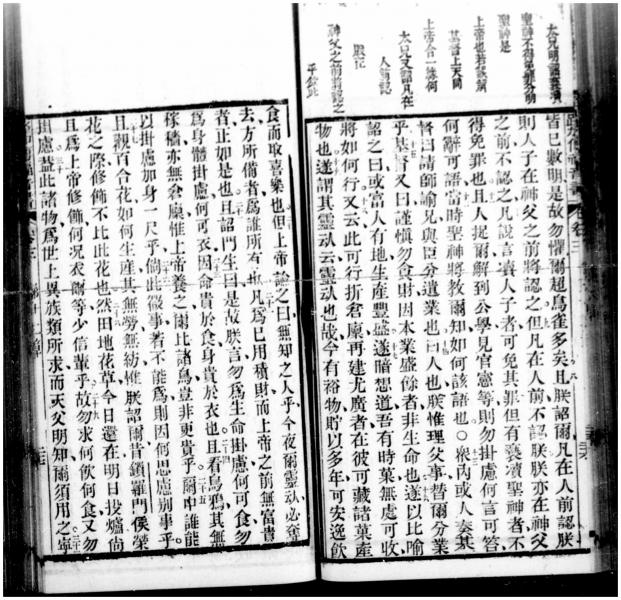 太兄明詔褻瀆
聖神不得免罪分明
聖神是
上帝也若
基督上天同
上帝合一緣何
太兄又詔凡在
人前認
神父之前將認之
乎欽此
皆已數明是故勿懼爾超鳥雀多矣且朕詔爾凡在人前認朕
則人子在神父之前將認之但凡在人前不認朕朕亦在神父
之前不認之凡說言瀆人子者可免其罪但有褻瀆聖神者不
得免罪也且人捉爾解到公學見官憲等則勿掛慮何言可答
何辭可語當時聖神將教爾知如何該語也○衆內或人奏基
督曰請師諭兄與臣分遺業也曰人也朕惟理父事替爾分業
乎基督又曰謹慎勿貪財因本業盛餘者非生命也遂以比喻
詔之曰或富人有地生產豐盛遂暗想道吾有時菓無處可收
將如何行又云此可行折倉廩再建尤廣者在彼可藏諸菓產
物也遂謂其靈魂云靈魂也哉今有裕物貯以多年可安逸飲
食而取喜樂也但上帝諭之曰無知之人乎今夜爾靈魂必奪
去方所備者爲誰所有也凡爲己用積財而上帝之前無富貴
者止如是也且詔門生曰是故朕言勿爲生命掛慮何可食勿
爲身體掛慮何可衣因命貴於食身貴於衣也且看烏鴉其無
稼穡亦無倉廩惟上帝養之爾比諸鳥豈非更貴乎爾中誰能
以掛慮加身一尺乎倘此微事者不能爲則因何思慮別事乎
且觀百合花如何生產其無勞無紡惟朕詔爾昔鎖羅門侯榮
花之際修飾不比此花也然田地花草今日還在明日投爐尚
且爲上帝修飾何况衣爾等少信輩乎故勿求何飲何食又勿
掛慮蓋此諸物爲世上異族類所求而天父明知爾須用之寧